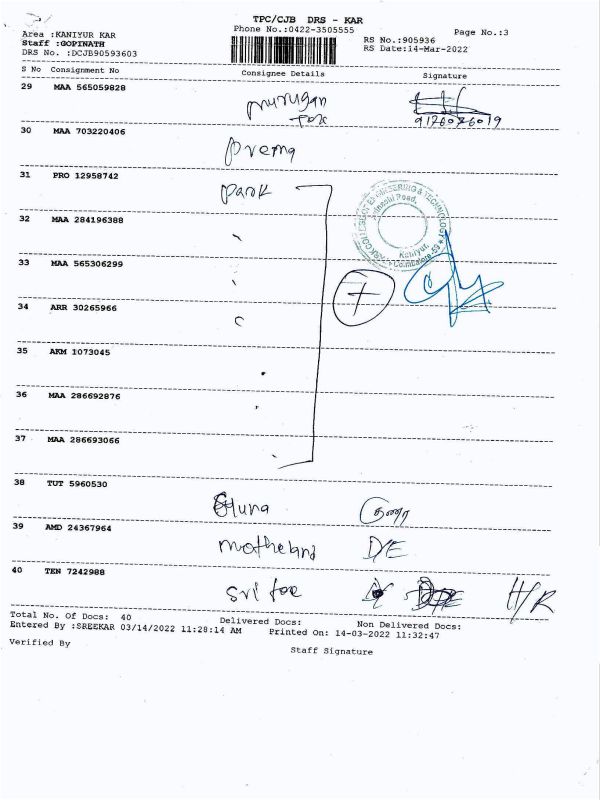 TPC/CJB DRS - KAR
Area :KANIYUR KAR
Phone No.:0422-3505555
Page No.:3
Staff :GOPINATH
RS No.:905936
DRS No. :DCJB90593603
RS Date:14-Mar-2022
S No Consignment No Consignee Details Signature
29 MAA 565059828 murugan
Tex 9126026019
30 MAA 703220406 prema
31 PRO 12958742 park
32 MAA 284196388
33 MAA 565306299
34 ARR 30265966
35 AKM 1073045
36 MAA 286692876
37 MAA 286693066
7
Kaniyur,
Coimbatore-59
38 TUT 5960530 குணா
39 AMD 24367964 motheland D/E
40 TEN 7242988 Sri toe H/R
Total No. Of Docs: 40 Delivered Docs: Non Delivered Docs:
Entered By :SREEKAR 03/14/2022 11:28:14 AM Printed On: 14-03-2022 11:32:47
Verified By Staff Signature